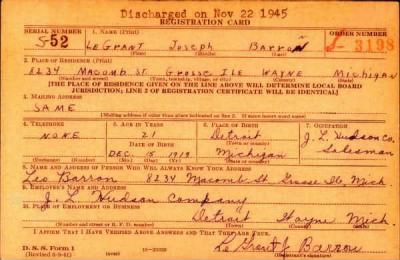 Discharged on Nov 22 1945
REGISTRATION CARD
SERIAL NUMBER
1. NAME (Print)
ORDER NUMBER
S-52
LeGrant Joseph Barron
S-3198
2. PLACE OF RESIDENCE (Print)
8234 Macomb St. Grosse Ile Wayne Michigan
(Number and street) (Town, township, village, or city) (County) (State)
[THE PLACE OF RESIDENCE GIVEN ON THE LINE ABOVE WILL DETERMINE LOCAL BOARD
JURISDICTION; LINE 2 OF REGISTRATION CERTIFICATE WILL BE IDENTICAL]
3. MAILING ADDRESS
SAME
[Mailing address if other than place indicated on line 2. If same insert word same]
4. TELEPHONE
5. AGE IN YEARS
6. PLACE OF BIRTH
7. OCCUPATION
NONE
21
Detroit
J. L. Hudson Co.
DATE OF BIRTH
DEC. 15 1919
Michigan
Salesman
(Exchange) (Number)
(Mo.) (Day) (Yr.)
(State or country)
8. NAME AND ADDRESS OF PERSON WHO WILL ALWAYS KNOW YOUR ADDRESS
Leo Barron 8234 Macomb St Grosse Ile, Mich
9. EMPLOYER'S NAME AND ADDRESS
J. L. Hudson Company
10. PLACE OF EMPLOYMENT OR BUSINESS
Detroit Wayne Mich.
(Number and street or R. F. D. number) (Town) (County) (State)
I AFFIRM THAT I HAVE VERIFIED ABOVE ANSWERS AND THAT THEY ARE TRUE.
D. S. S. Form 1
(Revised 6-9-41)
LeGrant J Barron